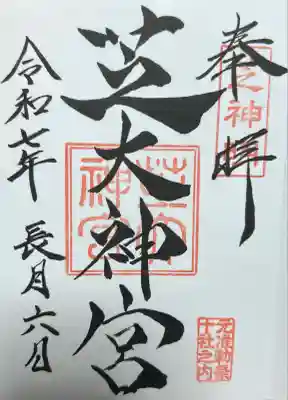 奉拝
元准勅祭
十社之内
芝大神宮
芝大
神宮
令和七年 長月六日